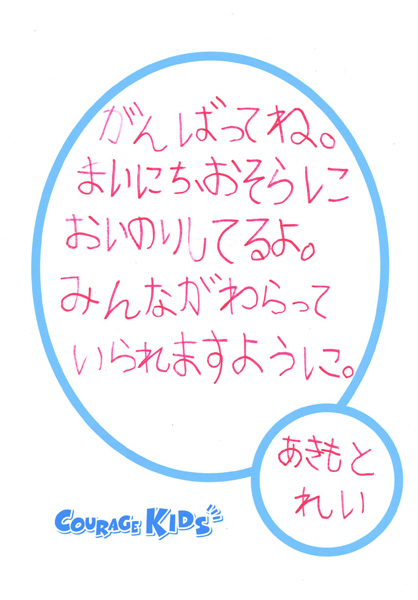 がんばってね。
まいにち、おそらに
おいのりしてるよ。
みんながわらって
いられますように。
あきもと
れい
COURAGE KIDS